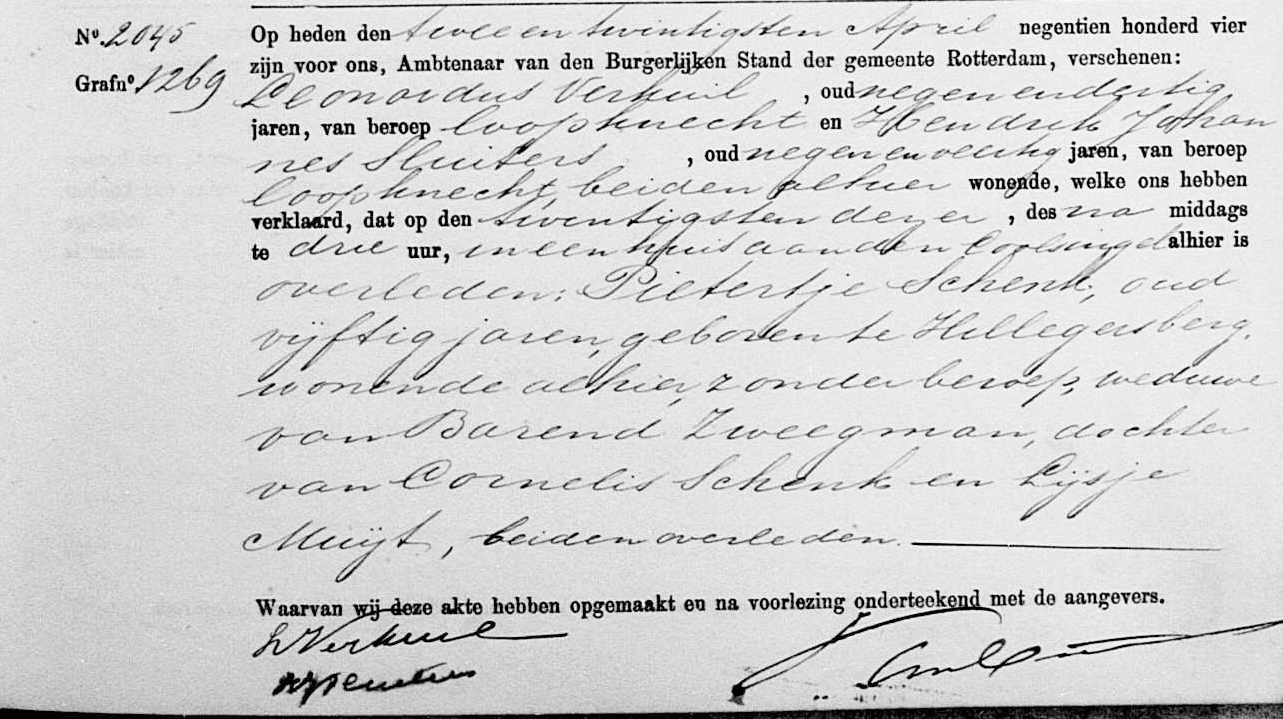 Nº. 2045
Grafnº. 1269
Op heden den twee en twintigsten April negentien honderd vier
zijn voor ons, Ambtenaar van den Burgerlijken Stand der gemeente Rotterdam, verschenen:
Leonardus Verkuil, oud negenendertig
jaren, van beroep loopknecht en Hendrik Johan
nes Sluiters, oud negenenveertig jaren, van beroep
loopknecht, beiden alhier wonende, welke ons hebben
verklaard, dat op den twintigsten dezer, des na middags
te drie uur, in een huis aan den Coolsingel alhier is
overleden: Pietertje Schenk, oud
vijftig jaren, geboren te Hillegersberg,
wonende alhier, zonder beroep, weduwe
van Barend Zweegman, dochter
van Cornelis Schenk en Lijsje
Muijt, beiden overleden.
Waarvan wij deze akte hebben opgemaakt en na voorlezing onderteekend met de aangevers.
L Verkuil
HJ Sluiters